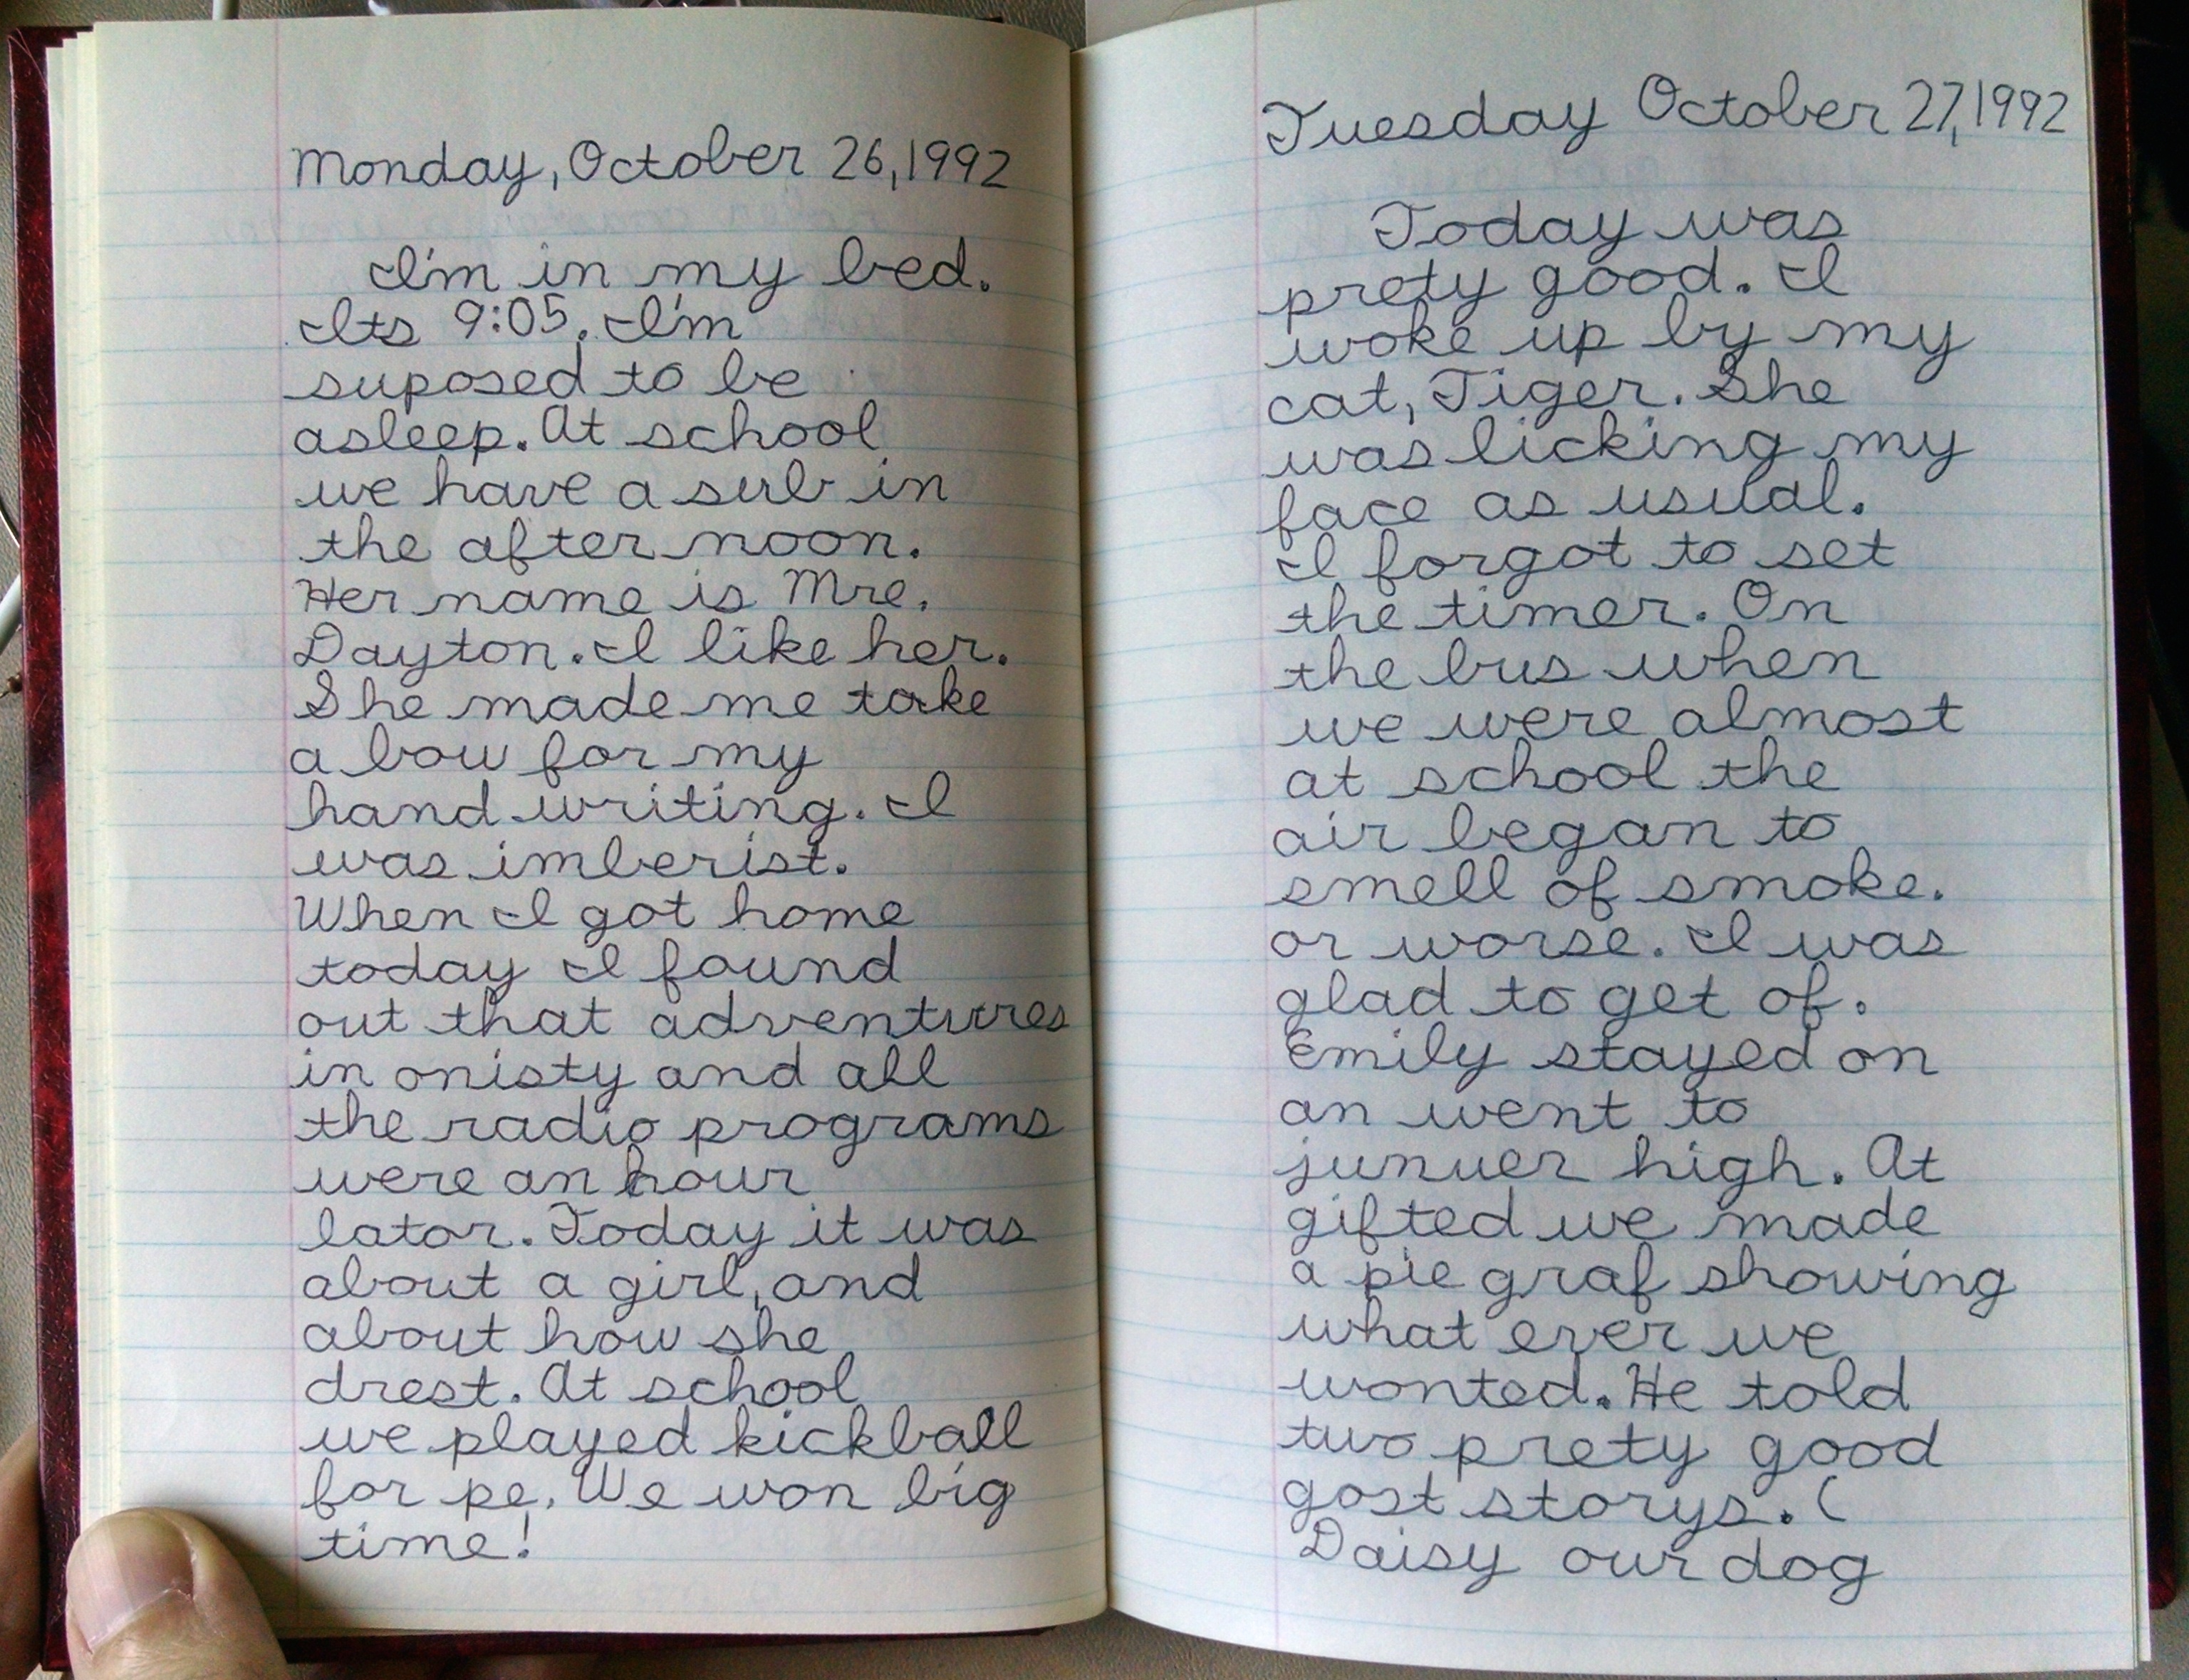 Monday, October 26, 1992
I'm in my bed.
Its 9:05. I'm
suposed to be
asleep. At school
we have a sub in
the after noon.
Her name is Mre.
Dayton. I like her.
She made me take
a bow for my
hand writing. I
was imberist.
When I got home
today I found
out that adventures
in onisty and all
the radio programs
were an hour
lator. Today it was
about a girl, and
about how she
drest. At school
we played kickball
for pe. We won big
time!
Tuesday October 27, 1992
Today was
prety good. I
woke up by my
cat, Tiger. She
was licking my
face as usual.
I forgot to set
the timer. On
the bus when
we were almost
at school the
air began to
smell of smoke.
or worse. I was
glad to get of.
Emily stayed on
an went to
junuer high. At
gifted we made
a pie graf showing
what ever we
wonted. He told
two prety good
gost storys. (
Daisy our dog